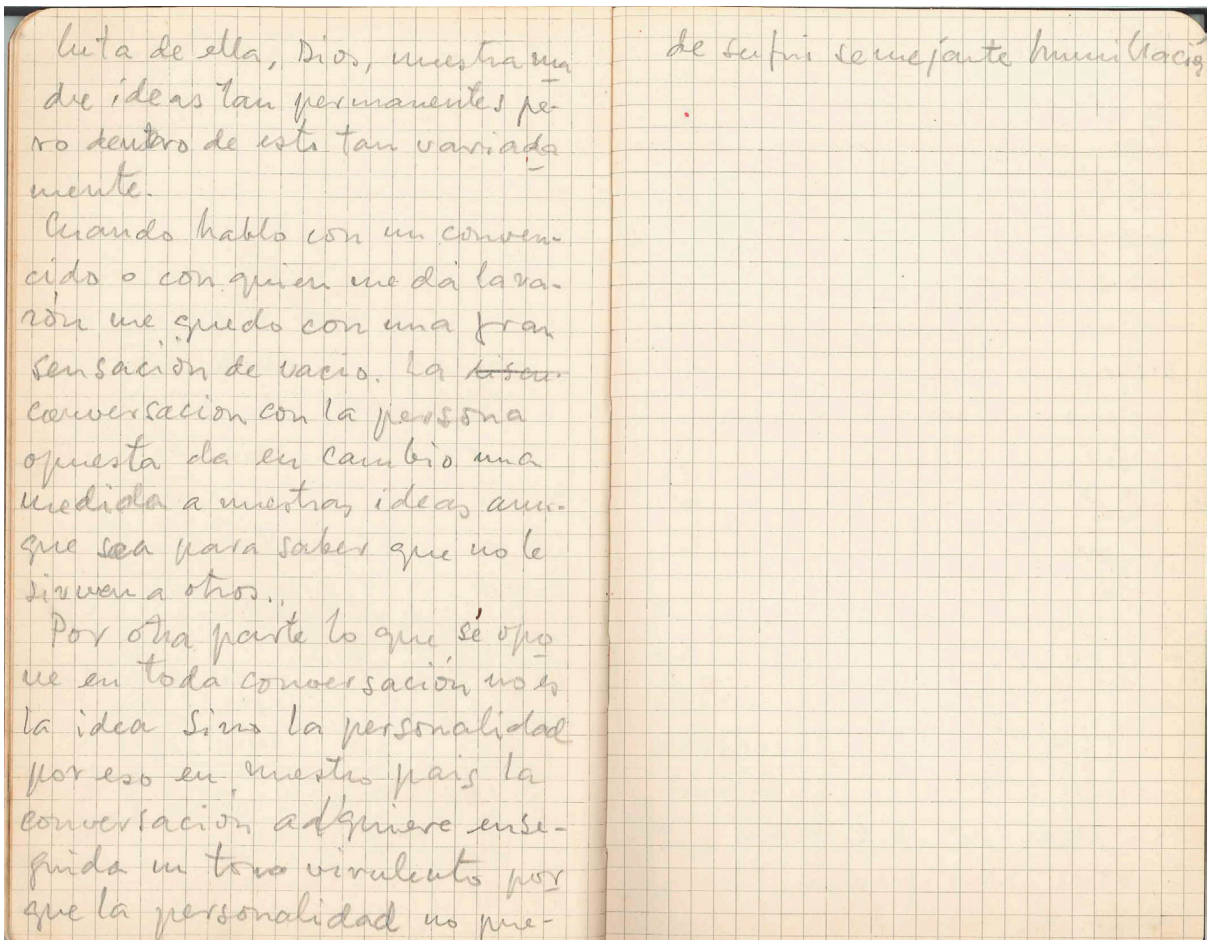 luta de ella, Dios, nuestra ma
dre ideas tan permanentes pe-
ro dentro de esto tan variada
mente.
Cuando hablo con un conven-
cido o con quien me dá la ra-
zón me quedo con una gran
sensación de vacio. La discu-
conversacion con la persona
opuesta da en cambio una
medida a nuestras ideas aun-
que sea para saber que no le
sirven a otros..
Por otra parte lo que sé opo
ne en toda conversación no es
la idea sino la personalidad
por eso en nuestro pais la
conversación adquiere ense-
guida un tono virulento por
que la personalidad no pue-
de sufrir semejante humillación